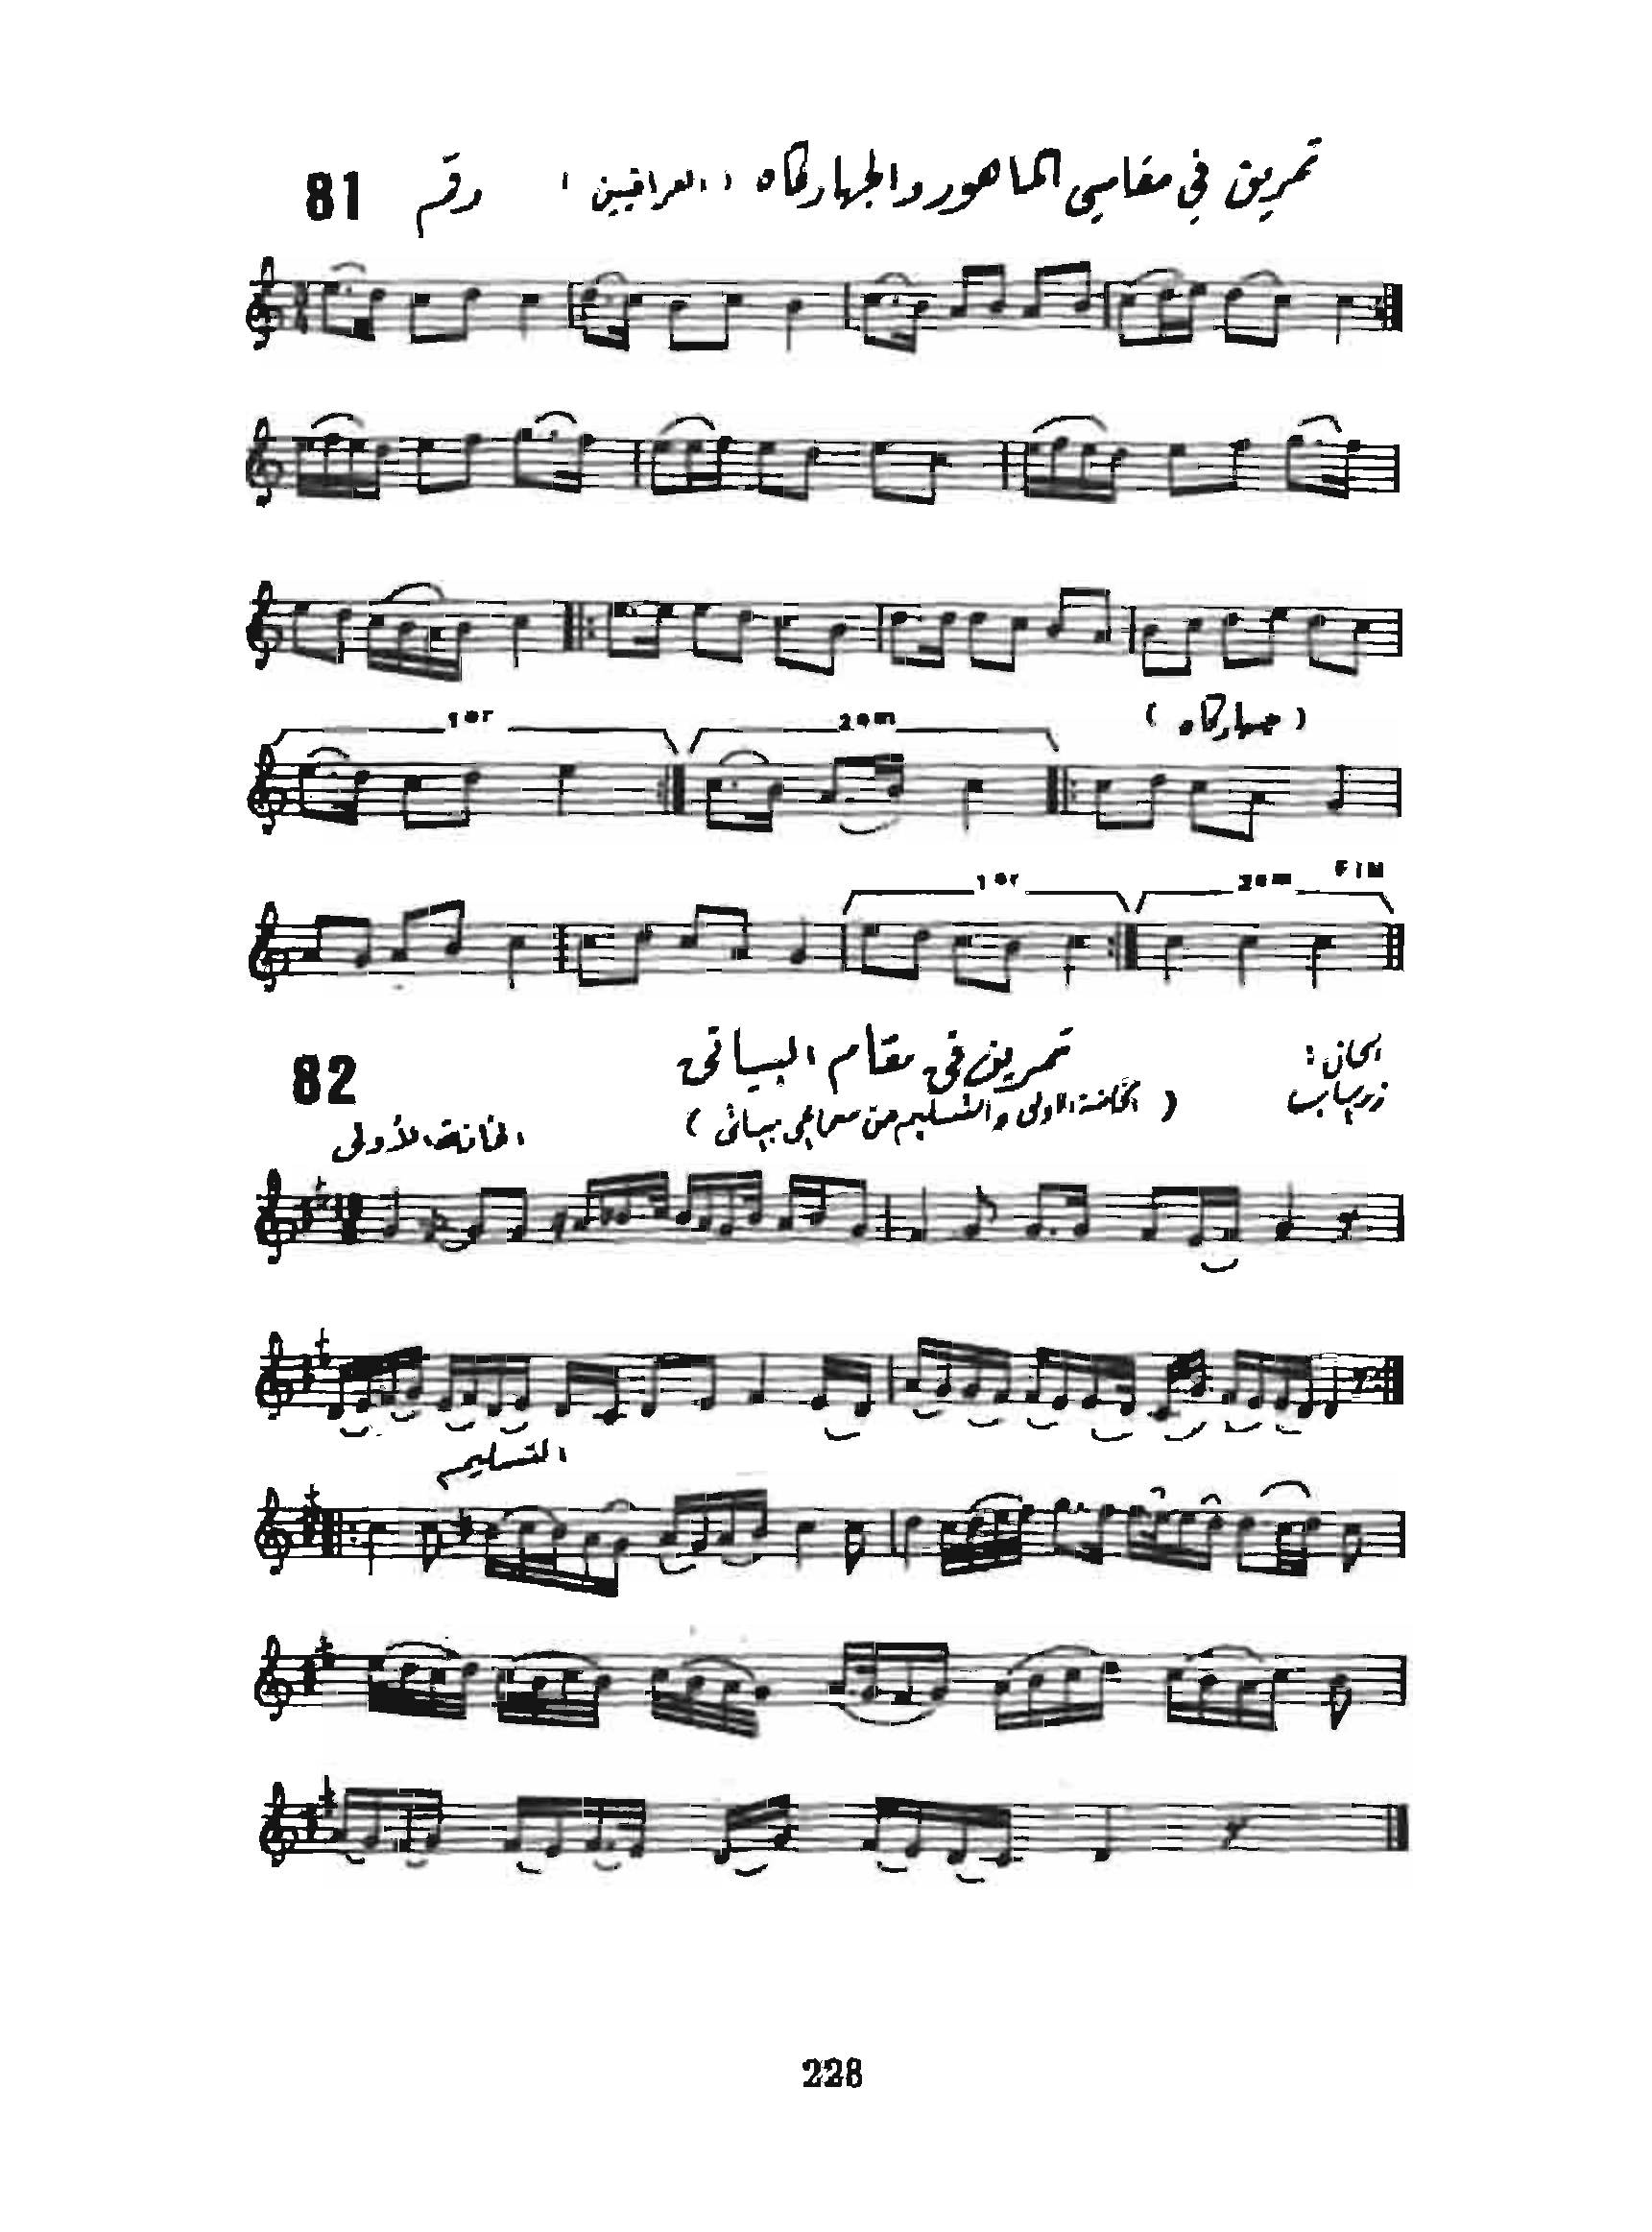 تمرين في مقامي الماهور والجهاركاه (العراقيين) رقم 81
1er 2em (جهاركاه)
1er 2em FIN
82 تمرين في مقام البياتي الحان:
(الخانة الاولى والتسليم من سماعي بياتي) زرياب
الخانة الأولى
التسليم
228